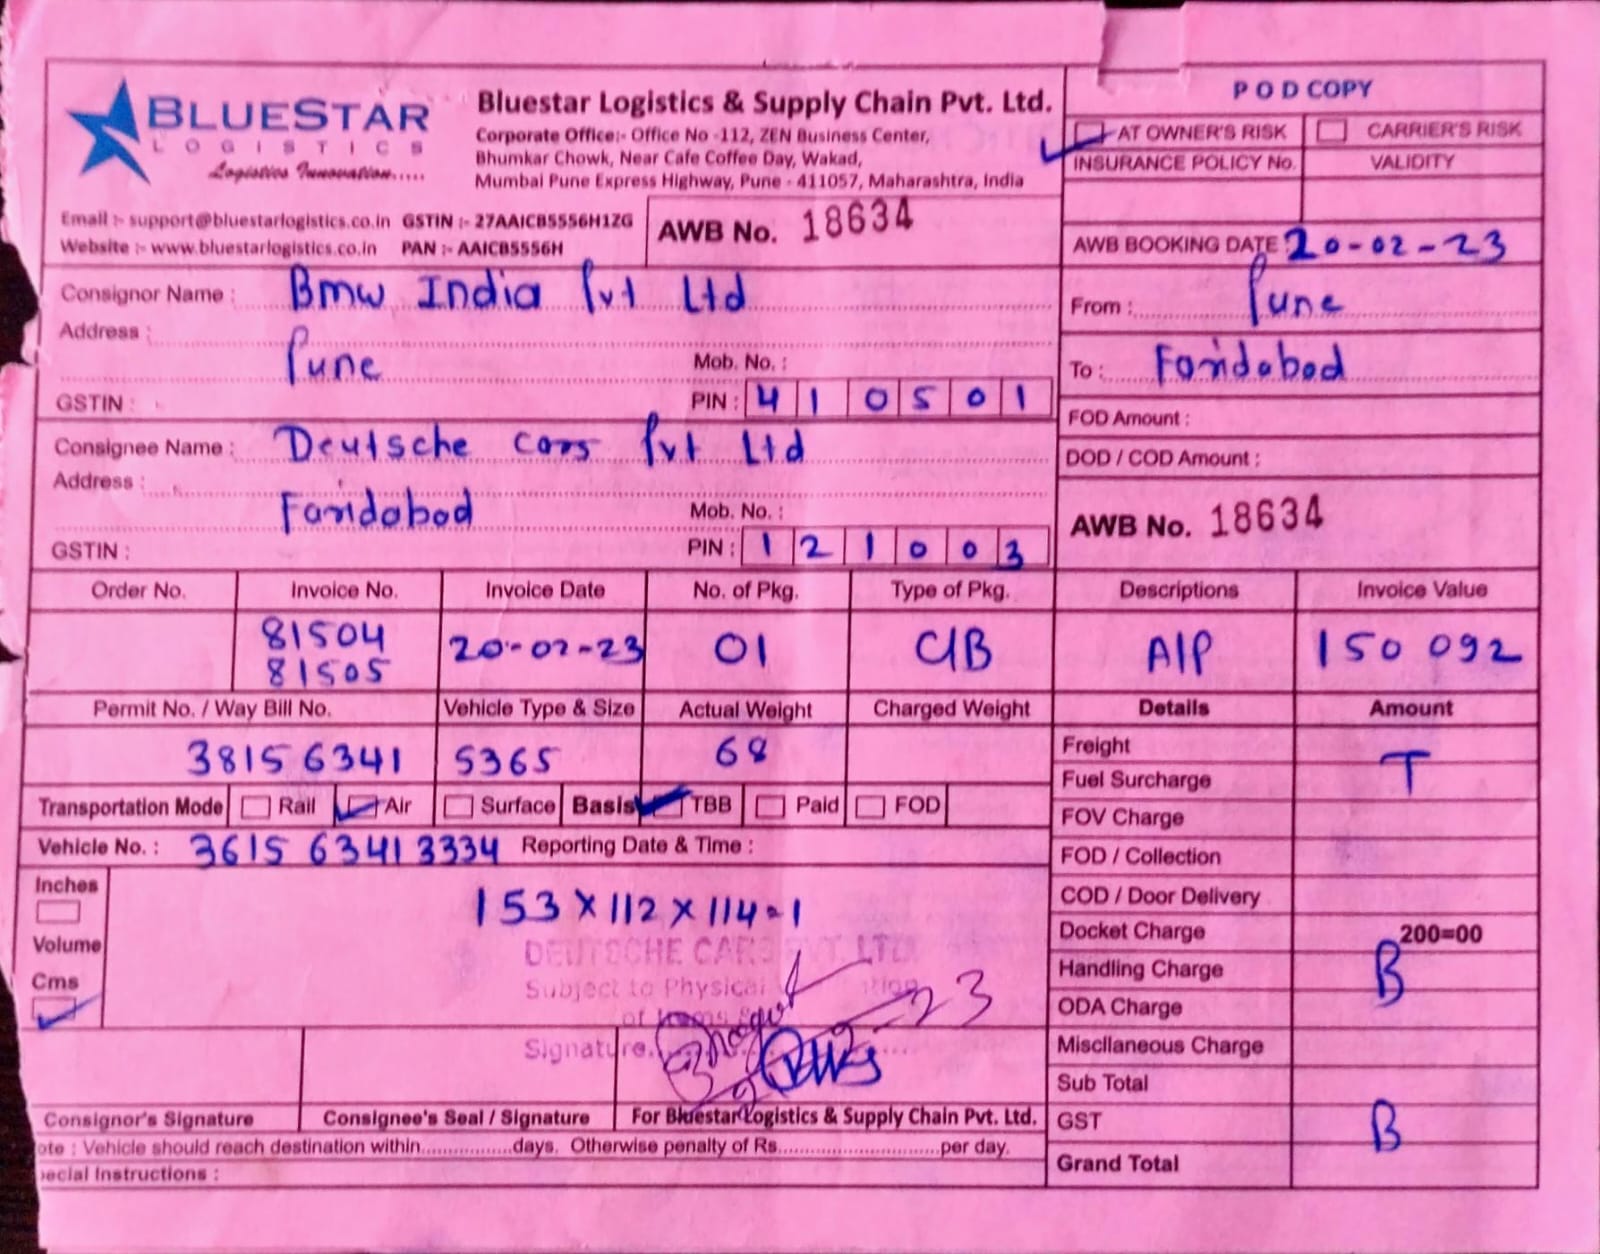 BLUESTAR
LOGISTICS
Logistics Innovation.....
Bluestar Logistics & Supply Chain Pvt. Ltd.
Corporate Office:- Office No -112, ZEN Business Center,
Bhumkar Chowk, Near Cafe Coffee Day, Wakad,
Mumbai Pune Express Highway, Pune - 411057, Maharashtra, India
Email :- support@bluestarlogistics.co.in GSTIN :- 27AAICB5556H1ZG
Website :- www.bluestarlogistics.co.in PAN :- AAICB5556H
AWB No. 18634
POD COPY
AT OWNER'S RISK CARRIER'S RISK
INSURANCE POLICY No. VALIDITY
AWB BOOKING DATE 20-02-23
Consignor Name : Bmw India Pvt Ltd
Address :
Pune Mob. No. :
GSTIN : PIN : 410501
From : Pune
To : Faridabad
FOD Amount :
DOD / COD Amount :
Consignee Name : Deutsche Cars Pvt Ltd
Address :
Faridabad Mob. No. :
GSTIN : PIN : 121003
AWB No. 18634
Order No. Invoice No. Invoice Date No. of Pkg. Type of Pkg. Descriptions Invoice Value
81504
81505 20-02-23 01 C/B A/P 150 092
Permit No. / Way Bill No. Vehicle Type & Size Actual Weight Charged Weight Details Amount
3815 6341 5365 68
Freight
T
Fuel Surcharge
Transportation Mode Rail Air Surface Basis TBB Paid FOD
FOV Charge
Vehicle No. : 3615 6341 3334 Reporting Date & Time :
FOD / Collection
Inches
153 x 112 x 114 - 1
COD / Door Delivery
Volume
Docket Charge 200=00
Cms
DEUTSCHE CARS PVT. LTD.
Subject to Physical
of Items
Signature
Handling Charge
B
ODA Charge
Miscllaneous Charge
Sub Total
GST
B
Grand Total
Consignor's Signature Consignee's Seal / Signature For Bluestar Logistics & Supply Chain Pvt. Ltd.
ote : Vehicle should reach destination within..................days. Otherwise penalty of Rs..............................per day.
pecial Instructions :